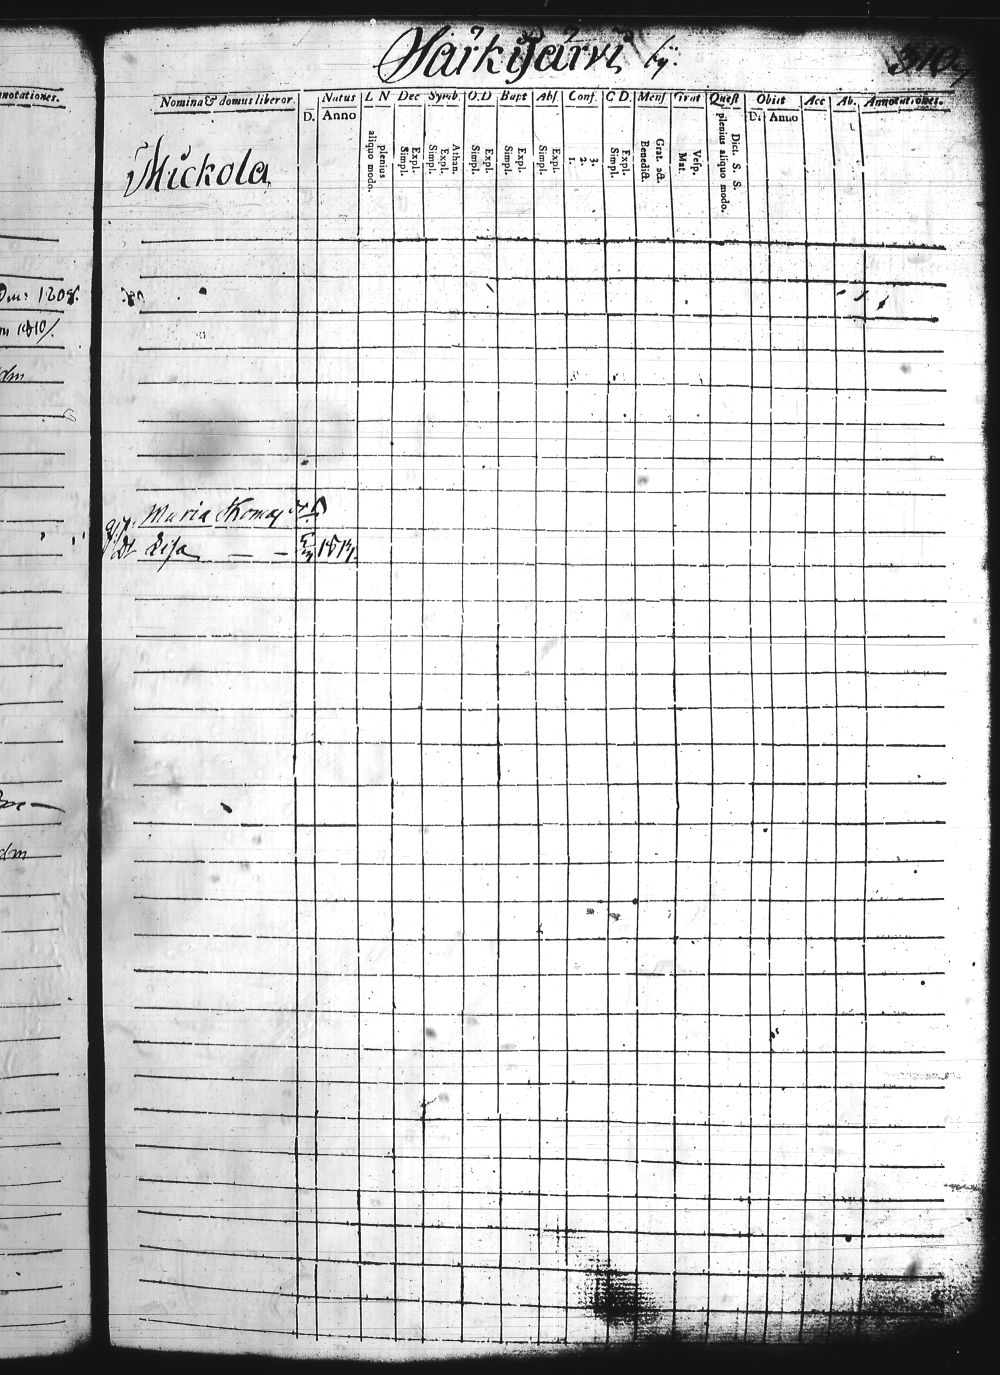 Härkijärvi by.
310
nnotationes.
Nomina & domus liberor. Natus L N Dec Symb. O.D Bapt Abs. Conf. C D. Mens Grat Quæst Obiit Acc Ab. Annotationes.
D. Anno aliquo modo. plenius Simpl. Expl. Simpl. Expl. Athan. Simpl. Expl. Simpl. Expl. Simpl. Expl. 1. 2. 3. Simpl. Expl. Benedict. Grat. act. Mat. Vesp. plenius aliquo modo. Dict. S. S. D. Anno
Mickola
1808.
1810/.
dm
Maria Thomas
Dr Lisa — — 1813.
dm